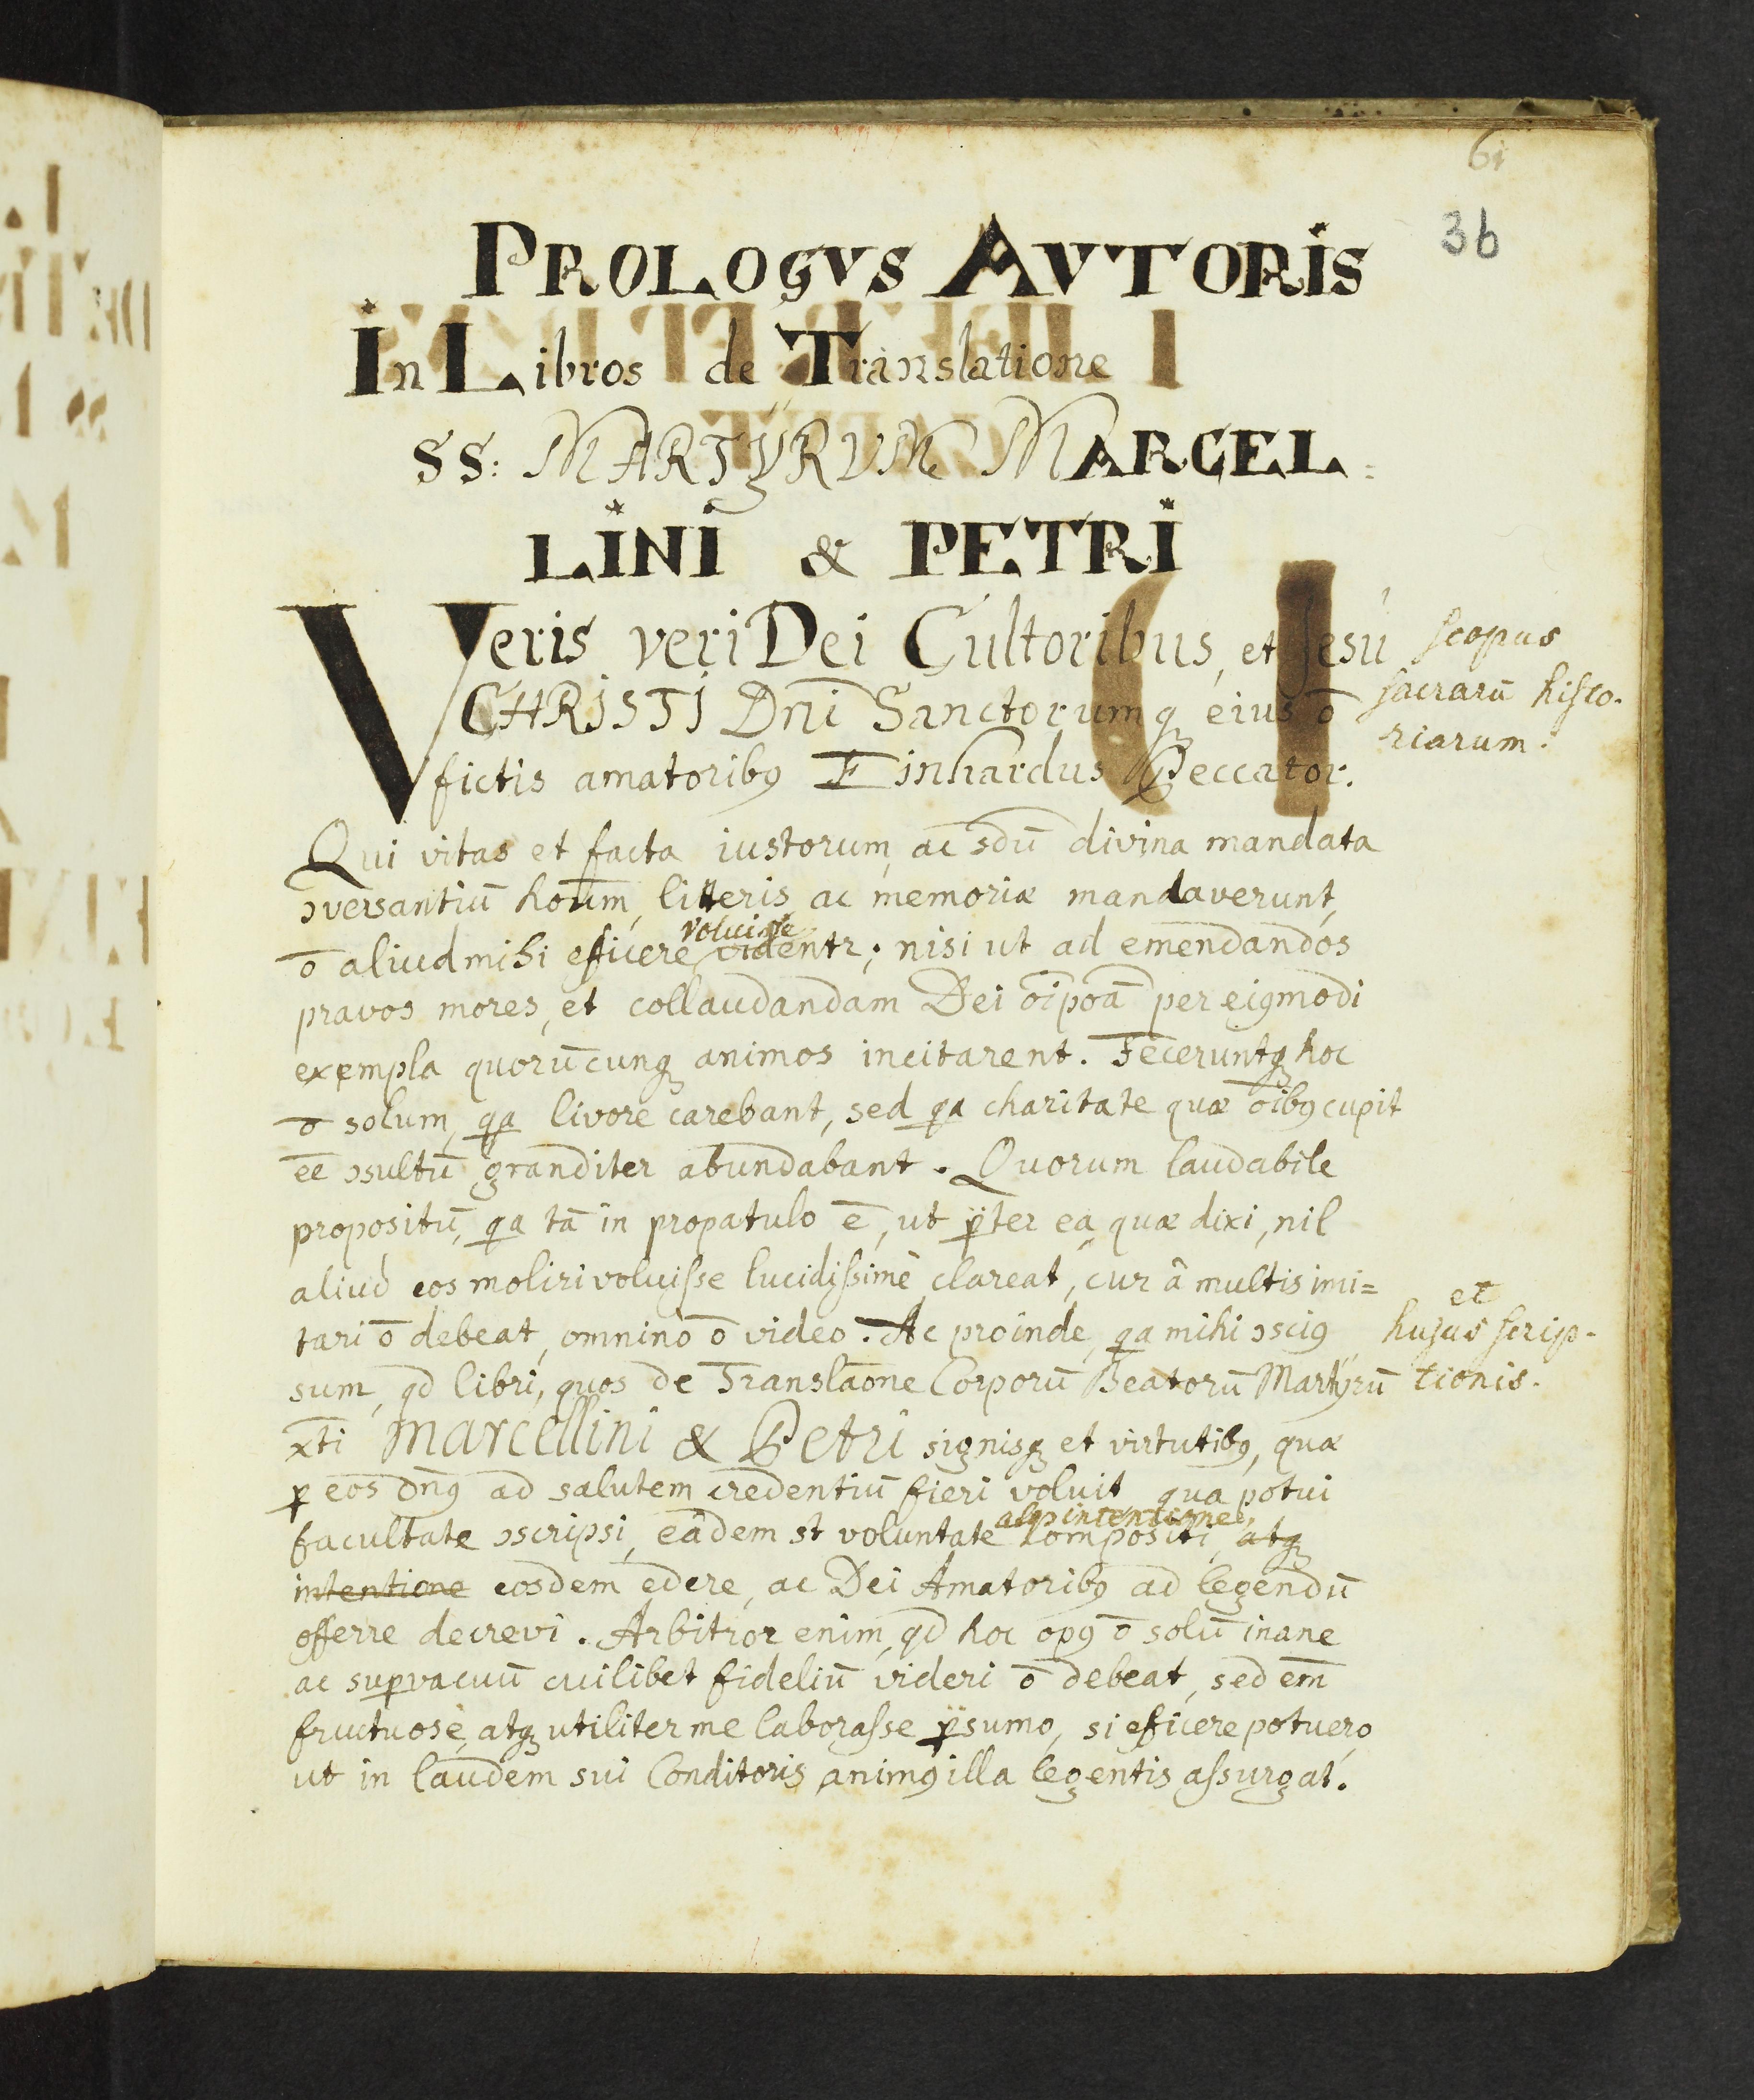 61
36
PROLOGVS AVTORIS
In Libros de Translatione
SS: MARTYRVM MARCEL:
LINI & PETRI
Veris veri Dei Cultoribus, et Jesu
CHRISTI Dn̄i Sanctorumq; eius ō
fictis amatoribꝯ Einhardus Peccator.
scopus
sacrarū histo-
riarum.
Qui vitas et facta iustorum, ac sdū divina mandata
ꝯversantiū hoūm, litteris ac memoriæ mandaverunt,
ō aliud mihi efficere voluisse videntr; nisi ut ad emendandos
pravos mores, et collaudandam Dei oīpōā per eiꝯmodi
exempla quorūcunq; animos incitarent. Feceruntq; hoc
ō solum, qa livore carebant, sed qa charitate quæ oībꝯ cupit
ēē ꝯsultū granditer abundabant. Quorum laudabile
propositū, qa tā in propatulo ē, ut p̄ter ea quæ dixi, nil
aliud eos moliri voluisse lucidissimè clareat, cur â multis imi=
tari ō debeat, omnino ō video. Ac proinde, qa mihi ꝯsciꝯ
sum, qd libri, quos de Translāone Corporū Beatorū Martyrū
et
hujus scrip-
tionis.
xti Marcellini & Petri signisq; et virtutibꝯ, quæ
ꝑ eos dnꝯ ad salutem credentiū fieri voluit qua potui
facultate ꝯscripsi, eâdem st voluntate atq; intentione, compositi, atq;
intentione eosdem edere, ac Dei Amatoribꝯ ad legendū
offerre decrevi. Arbitror enim, qd hoc opꝯ ō solū inane
ac suꝑvacuū cuilibet fideliū videri ō debeat, sed em̄
fructuosè, atq; utiliter me laborasse p̄sumo, si efficere potuero,
ut in laudem sui Conditoris animꝯ illa legentis assurgat.